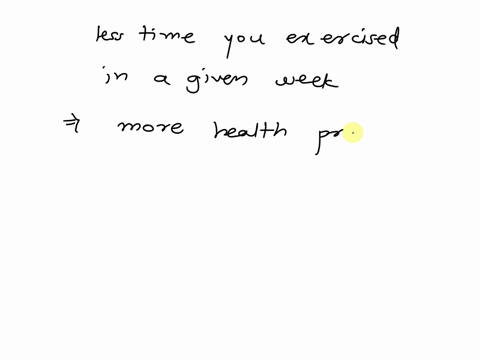 less time you exercised
in a given week
⇒ more health pr